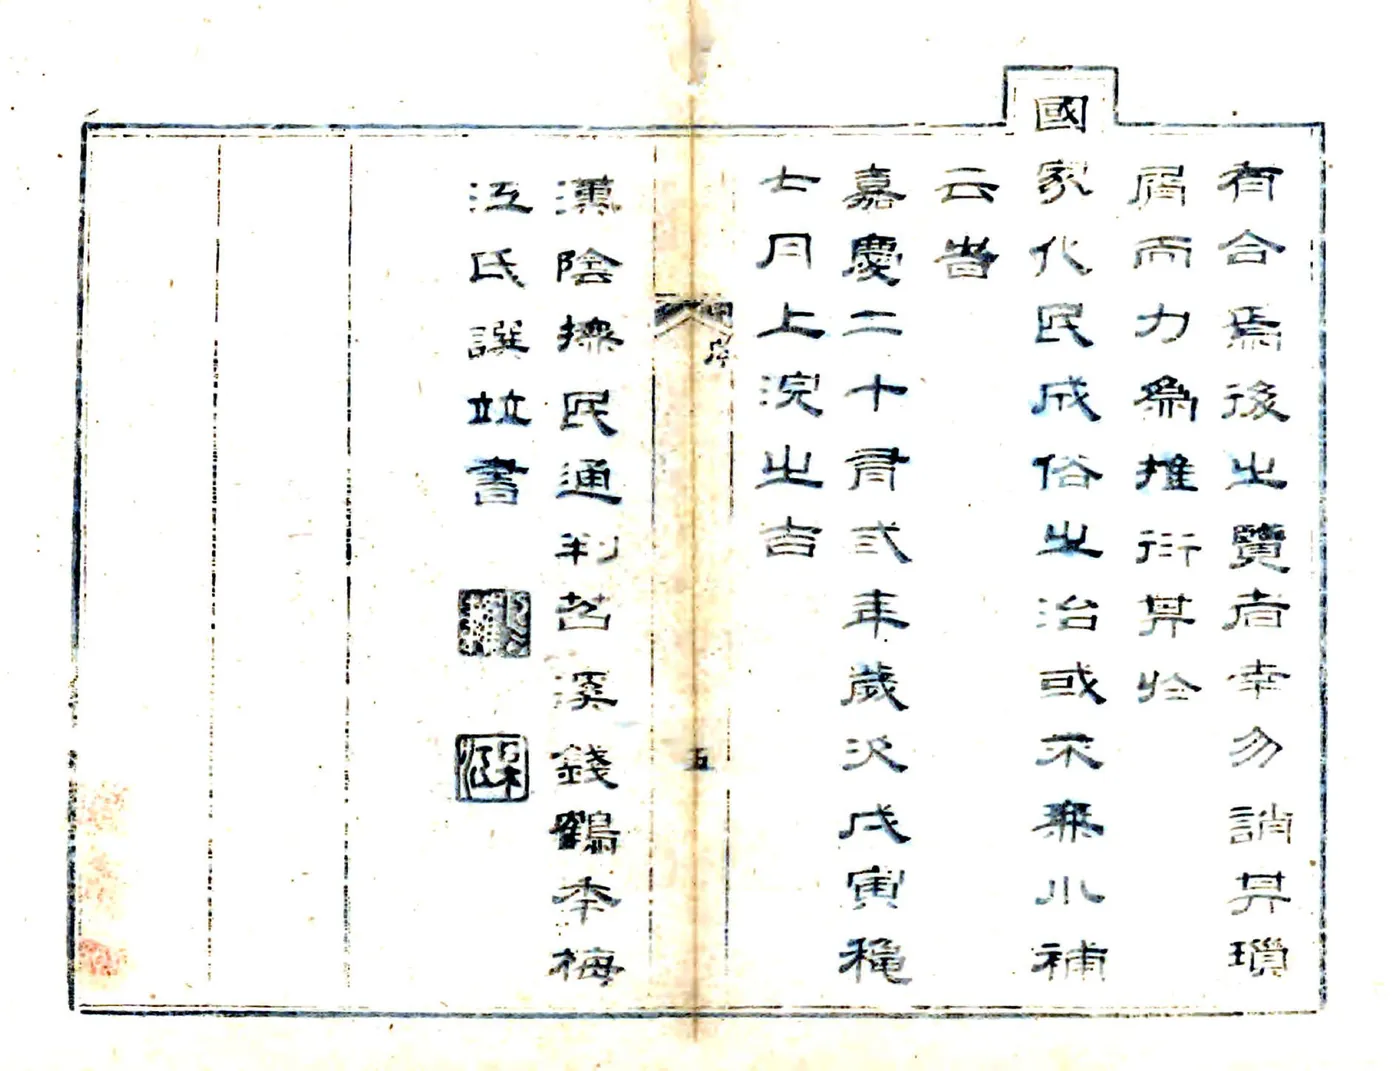 有合焉後之覽者幸勿誚其瑣
屑而力為推衍其於
國家化民成俗之治或不無小補
云者
嘉慶二十有弎年歲次戊寅穐
七月上浣之吉
序
五
漢陰撫民通判苕溪錢鶴年梅
江氏譔竝書
梅江